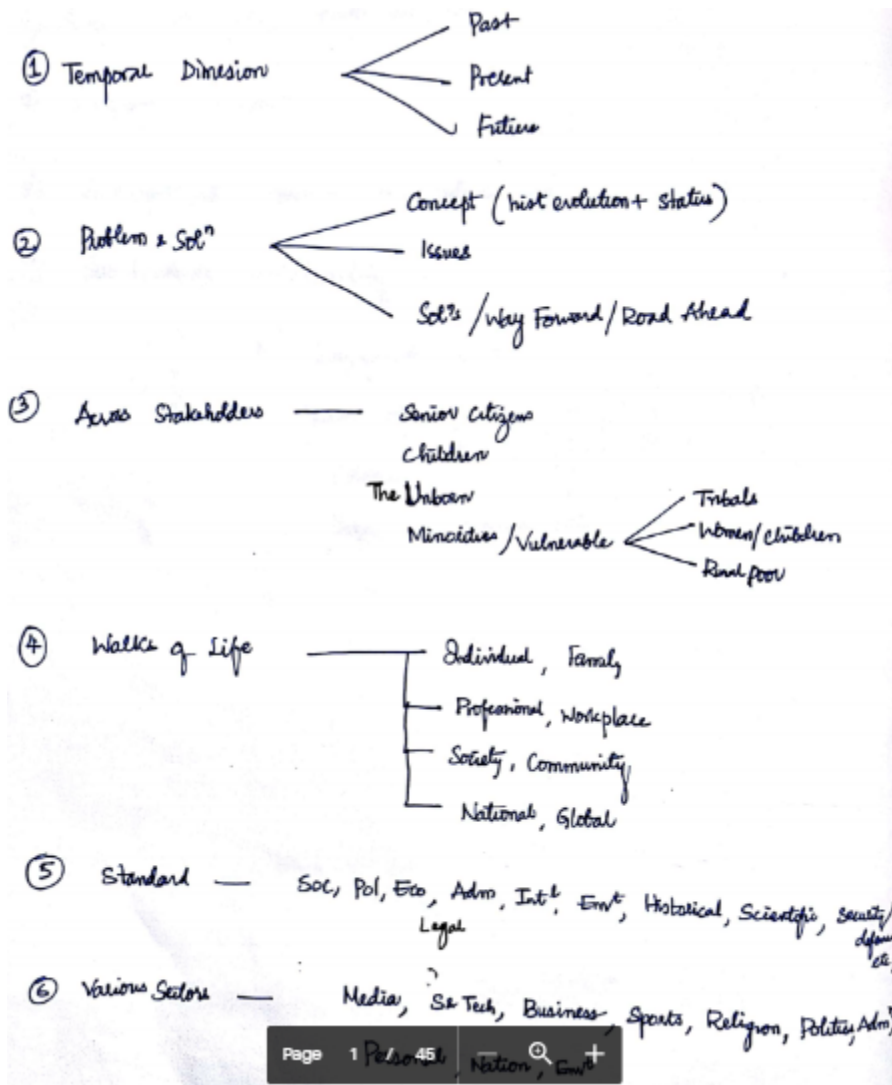 Past
① Temporal Dimesion
Present
Future
Concept (hist evolution + status)
② Problem & Solⁿ
Issues
Solⁿs / Way Forward / Road Ahead
③ Across Stakeholders — Senior Citizens
Children
The Unborn
Minorities / Vulnerable
Tribals
Women / Children
Rural poor
④ Walks of Life — Individual, Family
Professional, Workplace
Society, Community
National, Global
⑤ Standard — Soc, Pol, Eco, Adm, Intˡ, Envt, Historical, Scientific, Security/
Legal
etc
⑥ Various Sectors — Media, Sc Tech, Business, Sports, Religion, Politics, Admⁿ,
Personal, Nation, Envt
Page 1 / 45 — +